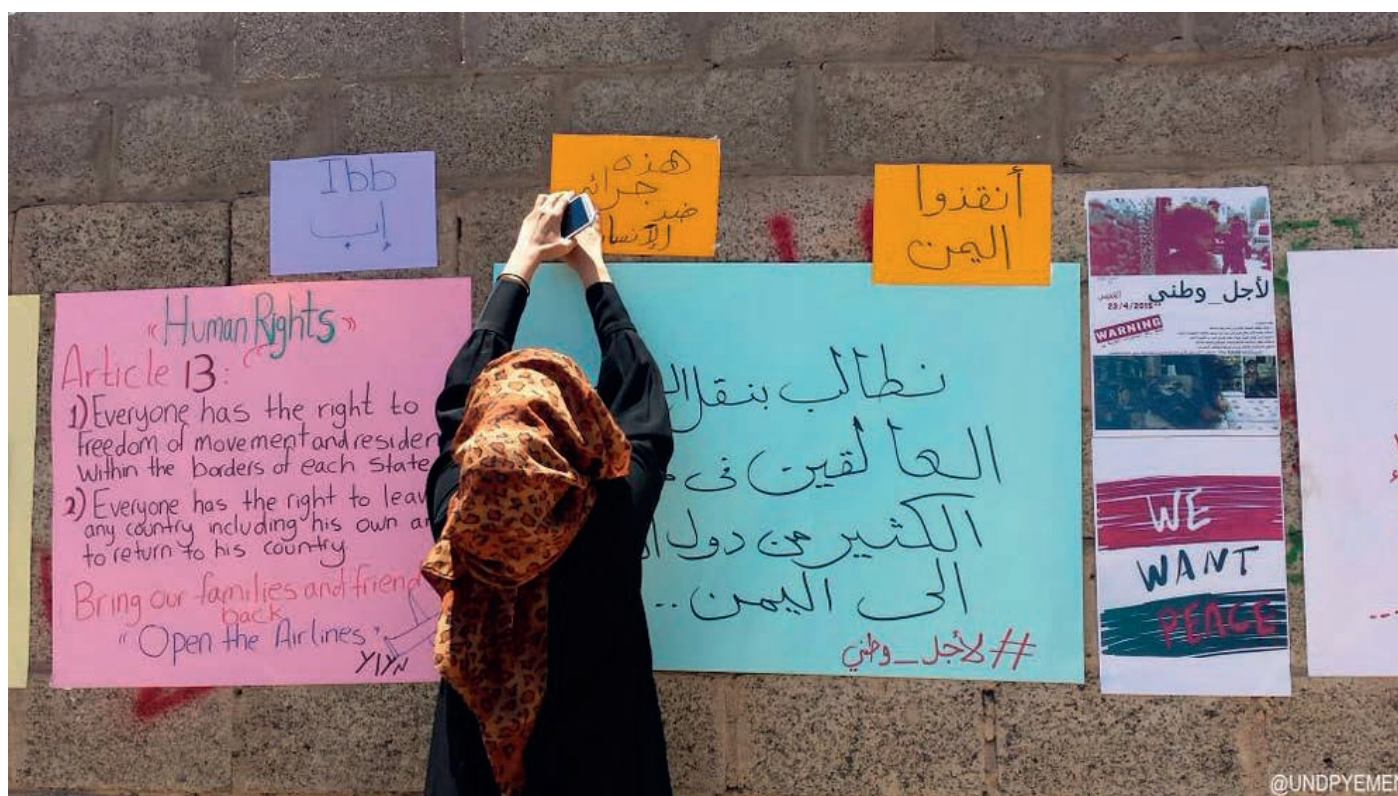 Ibb
إب
هذه
جرائم
ضد
الإنسا
أنقذوا
اليمن
"Human Rights"
Article 13:
1) Everyone has the right to
freedom of movement and residen
within the borders of each state
2) Everyone has the right to leav
any country including his own a
to return to his country
Bring our families and friend
back
"Open the Airlines"
نطالب بنقل
العالقين في
الكثير من دول
الى اليمن..
#لأجل_وطني
لأجل_وطني
الخميس
23/4/2015
WARNING
WE
WANT
PEACE
@UNDPYEMEN